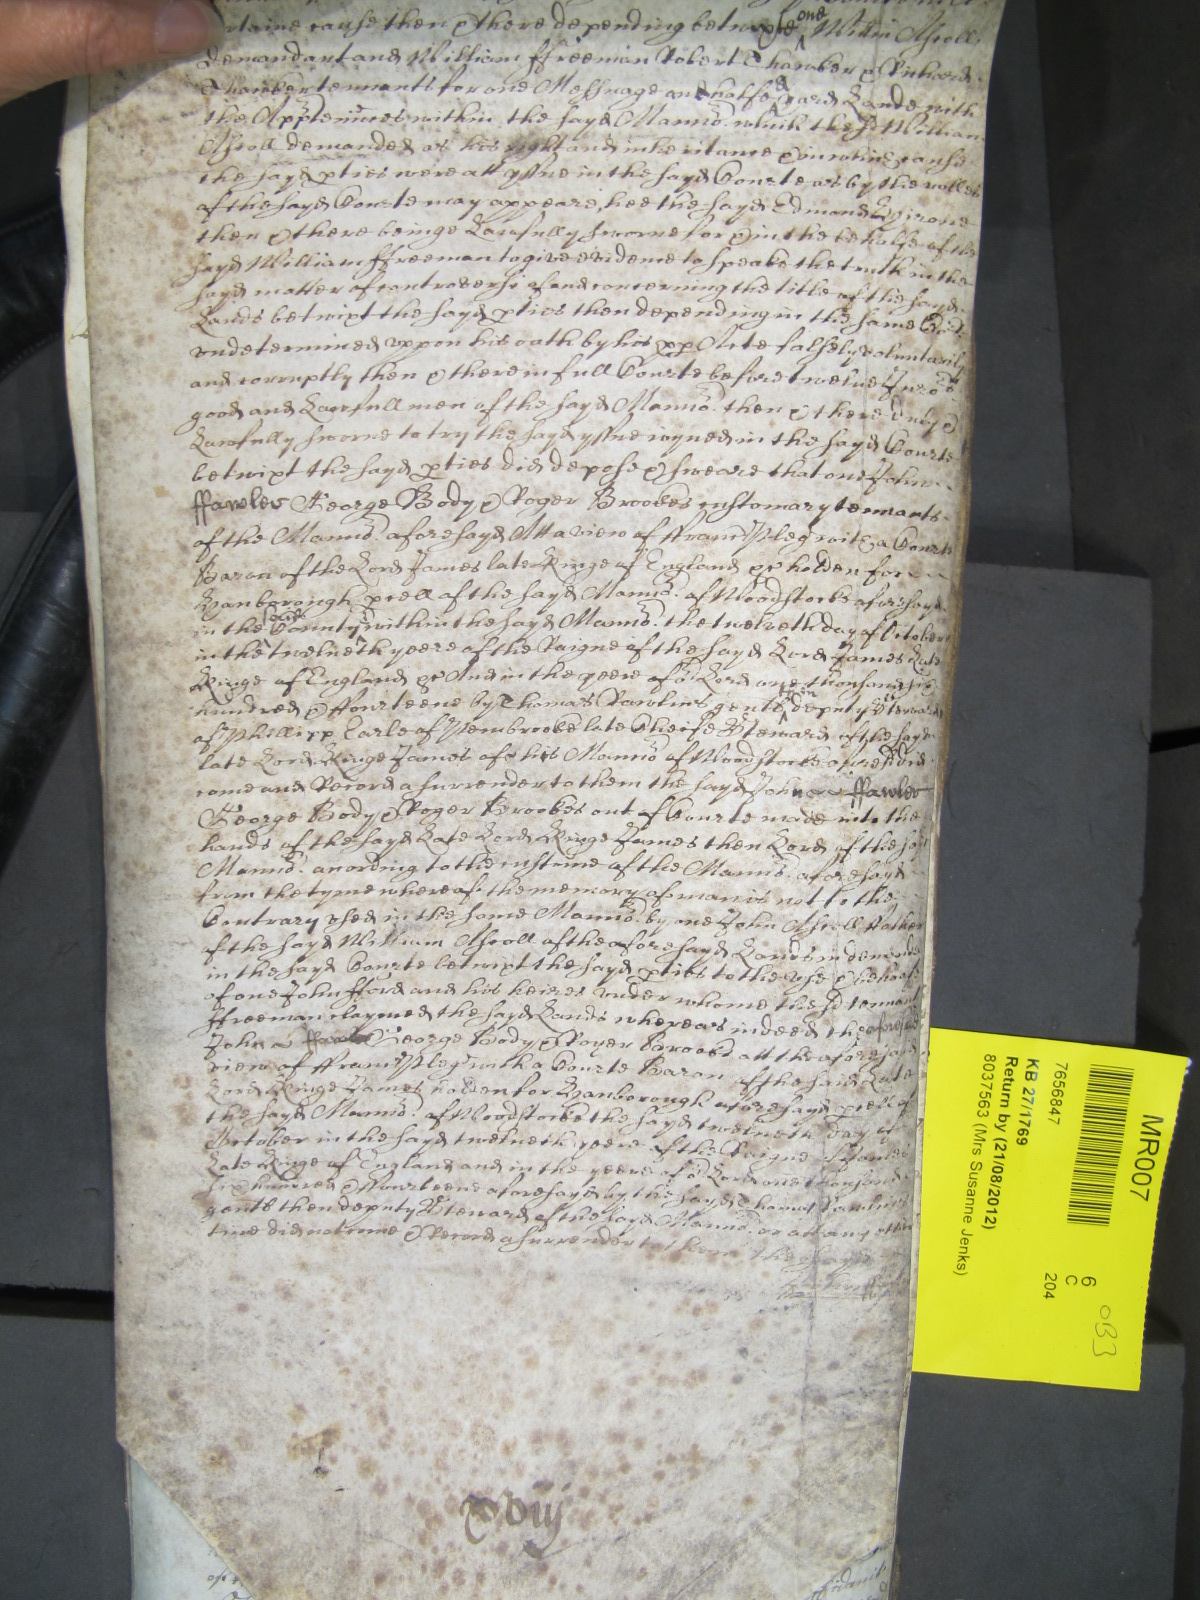 certaine cause then & there depending betwixt one Willm Ascoll
demandant and William ffreeman Robert Chamber & Richard
Chamber tennants for one Messuage and halfe a yard Lande with
the Apptennces within the sayd Mannor which the sd William
Ascoll demanded as his right and inheritance & in which cause
the sayd pties were att yssue in the sayd Courte as by the rolles
of the sayd Courte may appeare, hee the sayd Edmund
then & there beinge Lawfully sworne for & in the behalfe of the
sayd William ffreeman to give evidence to speake the truth in the
sayd matter of controversi of and concerning the title of the sayd
Lands betwixt the sayd pties then depending in the same Court
undetermined uppon his oath by his pp Acte falsely voluntarily
and corruptly then & there in full Courte before twelve Jurors
good and Lawfull men of the sayd Mannor then & there duly
Lawfully sworne to try the sayd yssue ioyned in the sayd Courte
betwixt the sayd pties did depose & sweare that one John
ffawler George Body & Roger Brookes customary tennants
of the Mannor aforesayd Att a view of ffranc Pleg with a Courte
Baron of the Lord James late Kinge of England &c holden for
Hanborough pcell of the sayd Mannor of Woodstocke aforesayd
in the County within the sayd Mannor the twelveth day of October
in the twelveth yeere of the Raigne of the sayd Lord James Late
Kinge of England &c And in the yeere of or Lord one thousand six
hundred & ffourteene by Thomas Rawlins gent then deputy Steward
of Phillipp Earle of Pembrooke late Cheife Steward of the sayd
late Lord Kinge James of his Mannor of Woodstocke aforesd did
come and Record a surrender to them the sayd John ffawler
George Body & Roger Brookes out of Courte made into the
hands of the sayd Late Lord Kinge James then Lord of the sayd
Mannor according to the custome of the Mannor aforesayd
from the tyme whereof the memory of man is not to the
Contrary used in the same Mannor by one John Ascoll ffather
of the sayd William Ascoll of the aforesayd Lands in demande
in the sayd Courte betwixt the sayd pties to the use & behoofe
of one John fford and his heires under whome the sd tennant
ffreeman claymed the sayd Lands whereas indeed the aforesaid
John ffawler George Body & Roger Brookes att the aforesayd
view of ffranc Pleg with a Courte Baron of the said Late
Lord Kinge James holden for Hanborough aforesayd pcell of
the sayd Mannor of Woodstocke the sayd twelveth day of
October in the sayd twelveth yeere of the Raigne of James
Late Kinge of England and in the yeere of or Lord one thousand
six hundred & ffourteene aforesayd by the sayd Thomas Rawlins
gent then deputy Steward of the sayd Mannor or at any other
time did not come & Record a surrender to them the sayd
xviij
MR007
6
C
204
OB3
7656847
KB 27/1769
Return by (21/08/2012)
8037563 (Mrs Susanne Jenks)